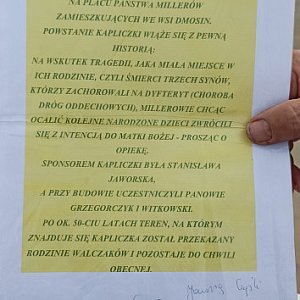 NA PLACU PAŃSTWA MILLERÓW
ZAMIESZKUJĄCYCH WE WSI DMOSIN.
POWSTANIE KAPLICZKI WIĄŻE SIĘ Z PEWNĄ
HISTORIĄ:
NA WSKUTEK TRAGEDII, JAKA MIAŁA MIEJSCE W
ICH RODZINIE, CZYLI ŚMIERCI TRZECH SYNÓW,
KTÓRZY ZACHOROWALI NA DYFTERYT (CHOROBA
DRÓG ODDECHOWYCH), MILLEROWIE CHCĄC
OCALIĆ KOLEJNE NARODZONE DZIECI ZWRÓCILI
SIĘ Z INTENCJĄ DO MATKI BOŻEJ - PROSZĄC O
OPIEKĘ.
SPONSOREM KAPLICZKI BYŁA STANISŁAWA
JAWORSKA.
A PRZY BUDOWIE UCZESTNICZYLI PANOWIE
GRZEGORCZYK I WITKOWSKI.
PO OK. 50-CIU LATACH TEREN, NA KTÓRYM
ZNAJDUJE SIĘ KAPLICZKA ZOSTAŁ PRZEKAZANY
RODZINIE WALCZAKÓW I POZOSTAJE DO CHWILI
OBECNEJ.